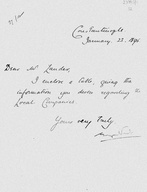 Constantinople
January 23. 1896
Dear Mr Lander,
I enclose a table, giving the
information you desire regarding the
Local Companies.
Yours very truly,